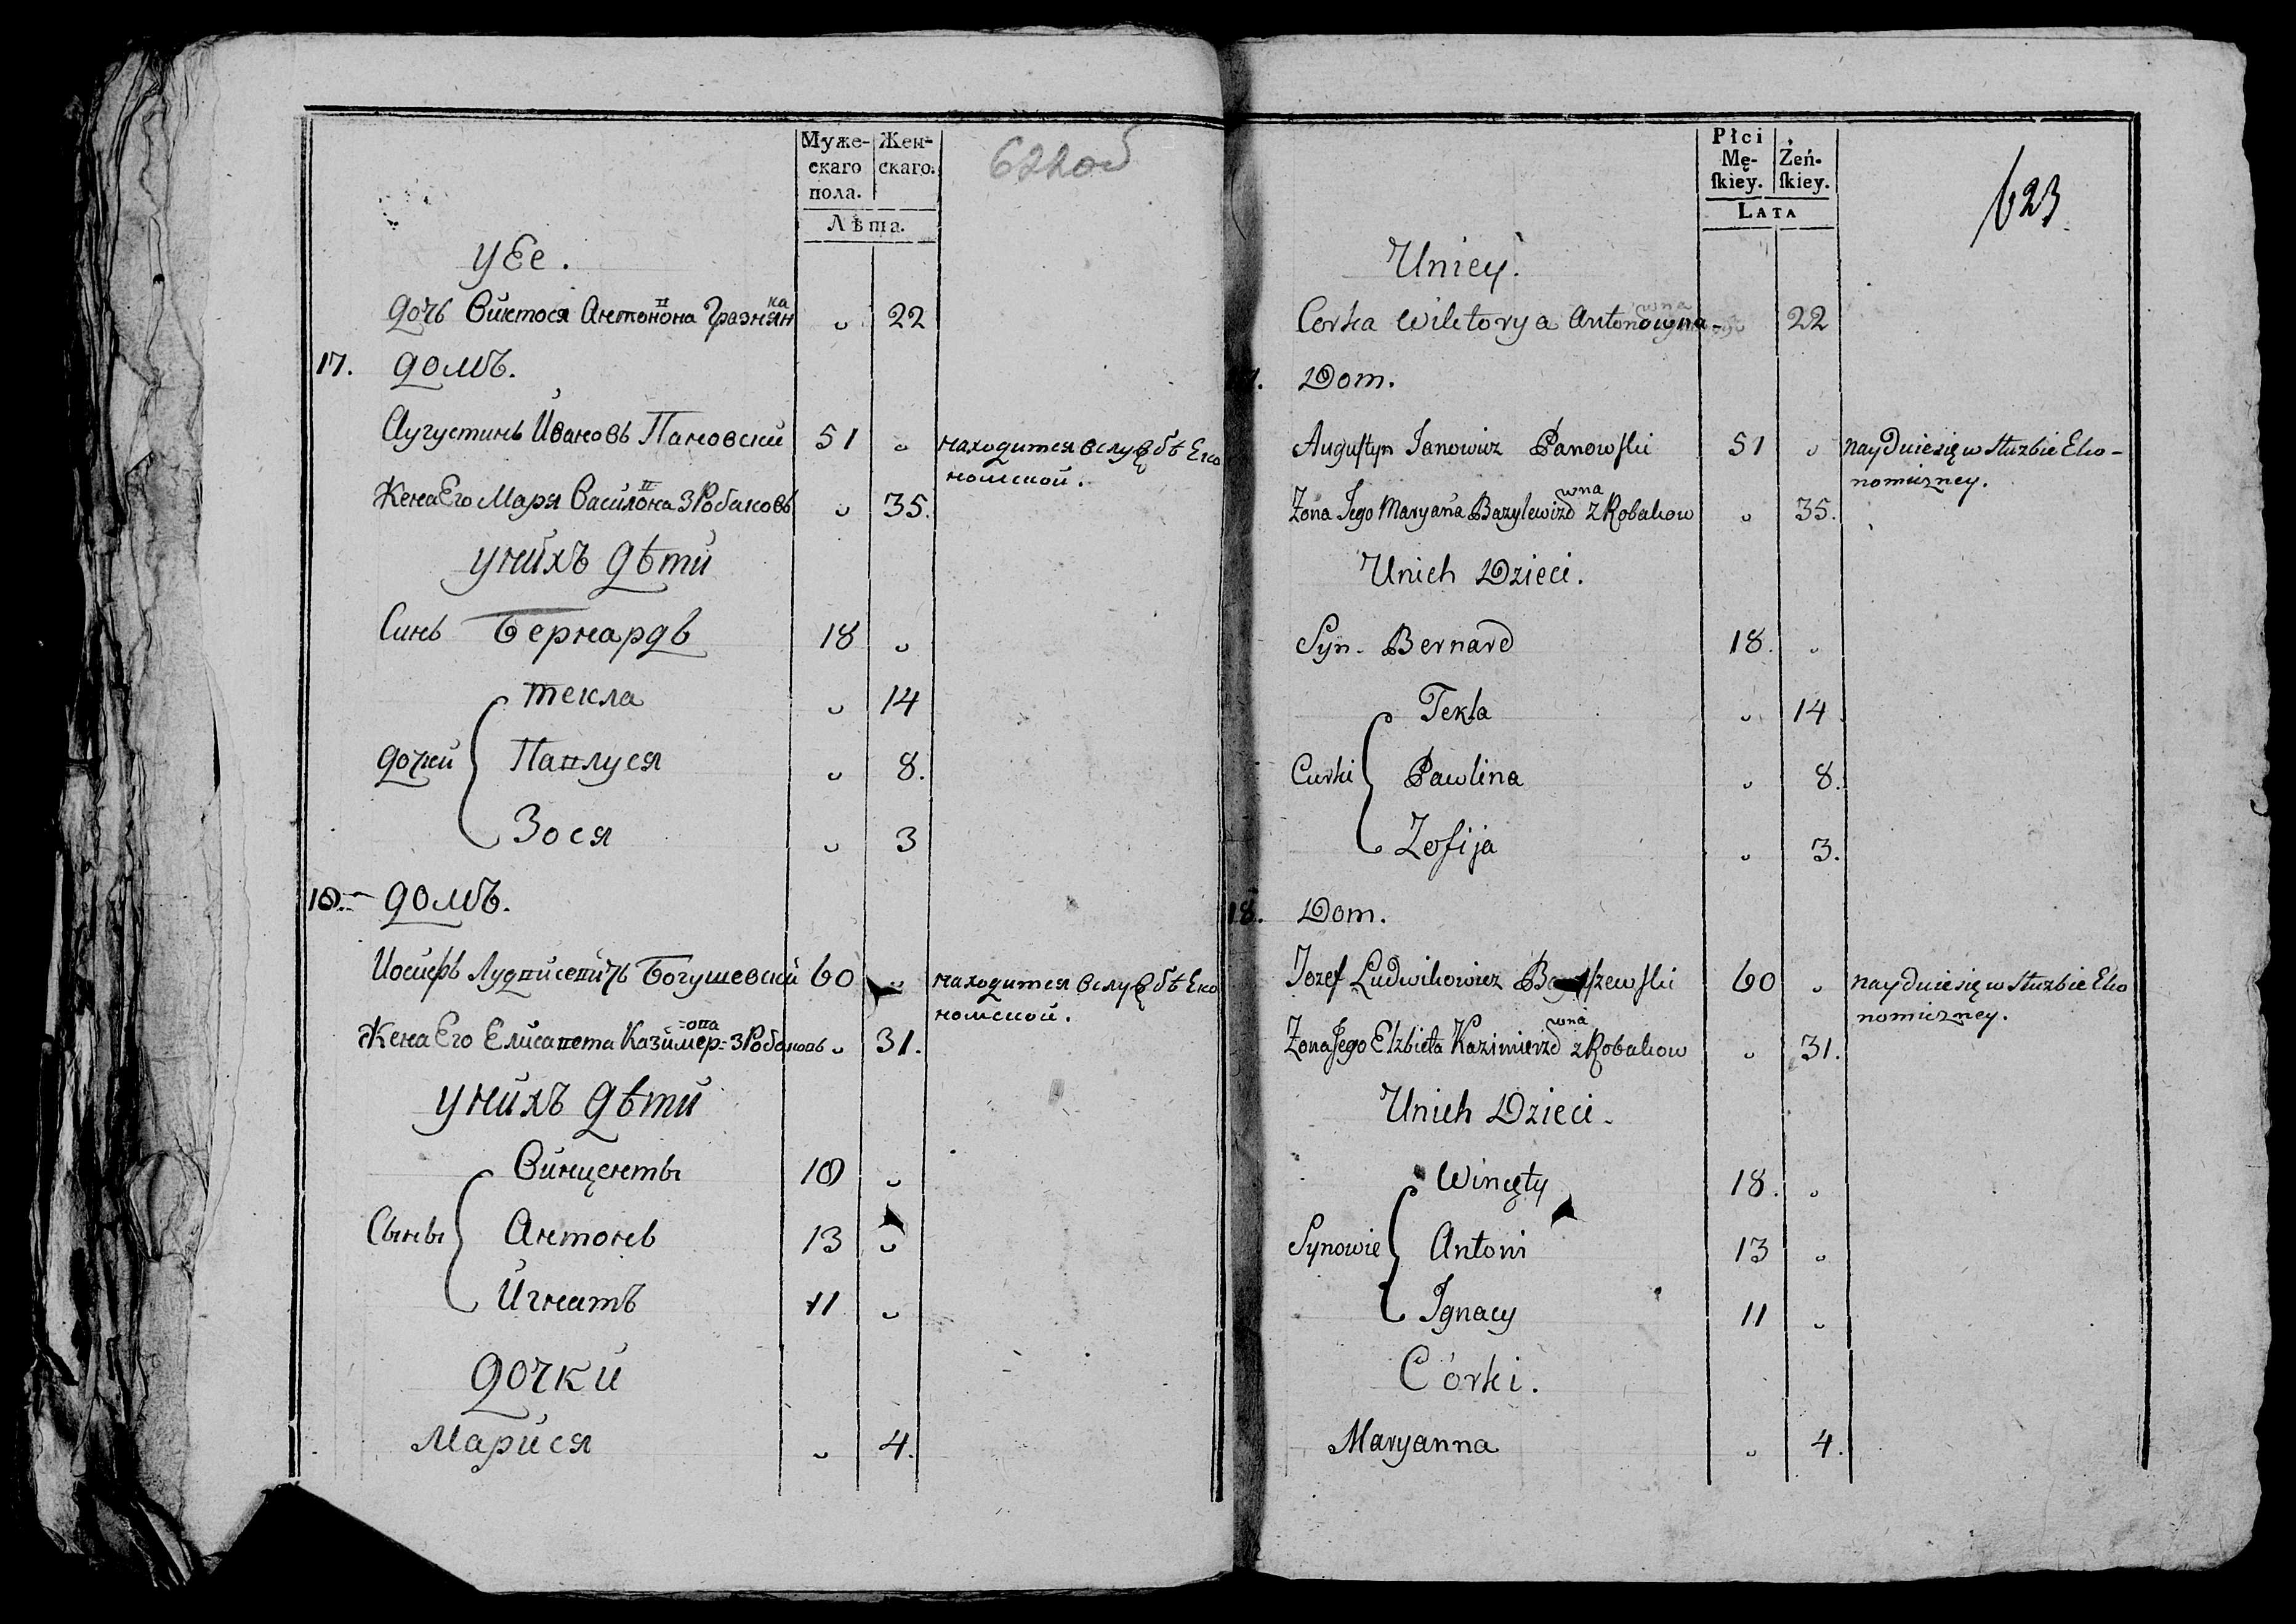 Муже-
скаго
пола.
Жен-
скаго.
Лѣта.
622об
У Ее.
дочь Виктося Антонона Гразнян
п
ка
„ 22
17. домъ.
Аугустинъ Ивановъ Пановский 51 „ находится вслужбѣ Еко
номской.
Жена Его Маря Василона З Робаковъ „ 35.
п
унихъ дѣти
Синъ Бернардъ 18 „
Текла „ 14
дочки Паплуся „ 8.
Зося „ 3
18. домъ.
Иосифъ Лудписепичъ Богушевский 60 „ находится вслужбѣ Еко
номской.
Жена Его Елисапета Казимер= З Робаковъ „ 31.
=опа
унихъ дѣти
Винценты 18 „
Сыны Антонъ 13 „
Игнатъ 11 „
дочки
Марися „ 4.
Płci
Mę-
ſkiey.
Żeń-
ſkiey.
LATA
623
Uniey.
Corka Wiktorya Antonowna 22
wna
Dom.
Auguſtyn Janowicz Panowſki 51 „ nayduie się w służbie Eko-
nomiczney.
Zona Jego Maryana Bazylewizd z Robakow „ 35.
wna
Unich Dzieci.
Syn. Bernard 18. „
Tekla „ 14
Curki Pawlina „ 8.
Zofija „ 3.
18. Dom.
Jozef Ludwikowicz 60 „ nayduie się w służbie Eko
nomiczney.
Zona Jego Elzbieta Kazimierzd z Robakow „ 31.
wna
Unich Dzieci.
Wincęty 18. „
Synowie Antoni 13 „
Ignacy 11 „
Córki.
Maryanna „ 4.